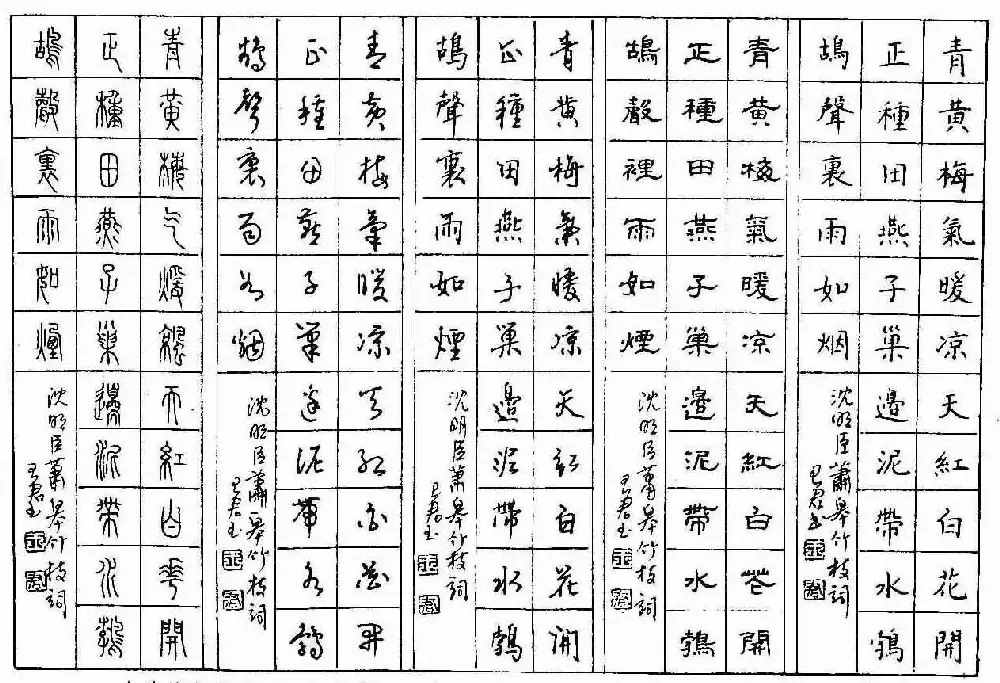 青黄梅氣暖凉天紅白花開
正種田燕子巢邊泥帶水鵓
鴣聲裏雨如烟
沈明臣蕭皋竹枝詞
青黄梅氣暖凉天紅白花開
正種田燕子巢邊泥帶水鵓
鴣聲裡雨如煙
沈明臣蕭皋竹枝詞
青黄梅氣暖凉天紅白花開
正種田燕子巢邊泥帶水鵓
鴣聲裏雨如煙
沈明臣蕭皋竹枝詞
青黄梅氣暖凉天紅白花開
正種田燕子巢邊泥帶水鵓
鴣聲裏雨如烟
沈明臣蕭皋竹枝詞
青黄梅气煖凉天紅白華開
正種田燕子巢邊泥帶水鵓
鴣聲裏雨如煙
沈明臣蕭皋竹枝詞